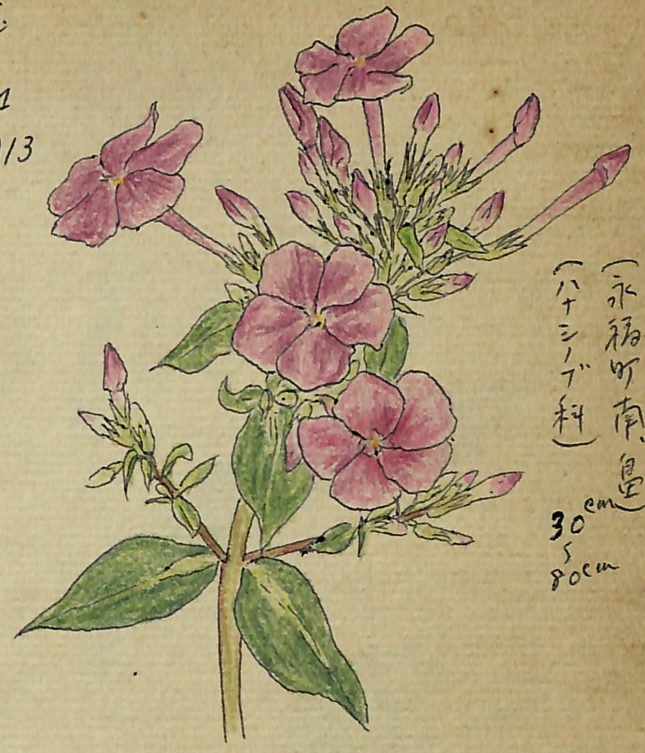 1
/13
(永福町南島
(ハナシノブ科)
30cm
〜
80cm